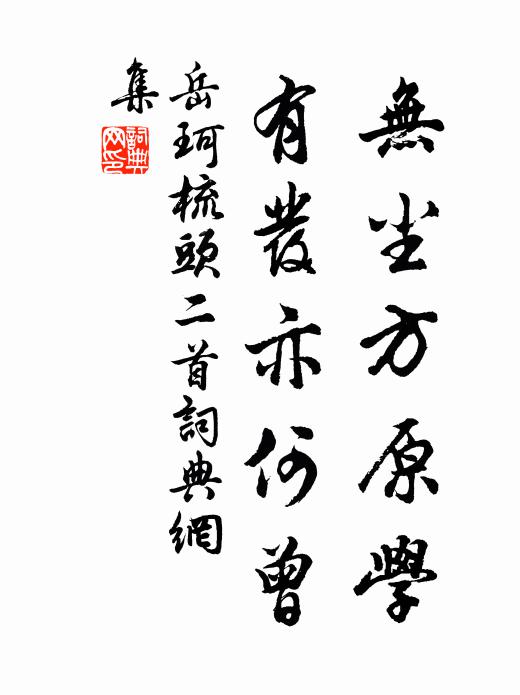 無塵方原學
有發亦何曾
岳珂梳頭二首詞典網
集
詞典
网印